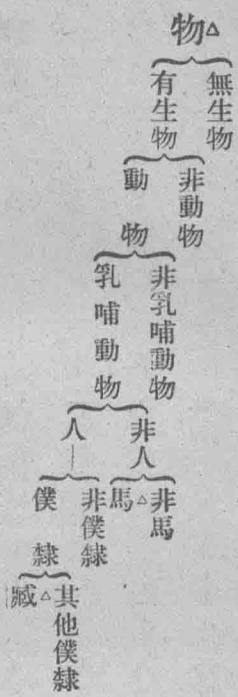 物△
無生物
有生物
非動物
動物
非乳哺動物
乳哺動物
非人
人
非馬
馬△
非僕隸
僕隸
其他僕隸
臧△